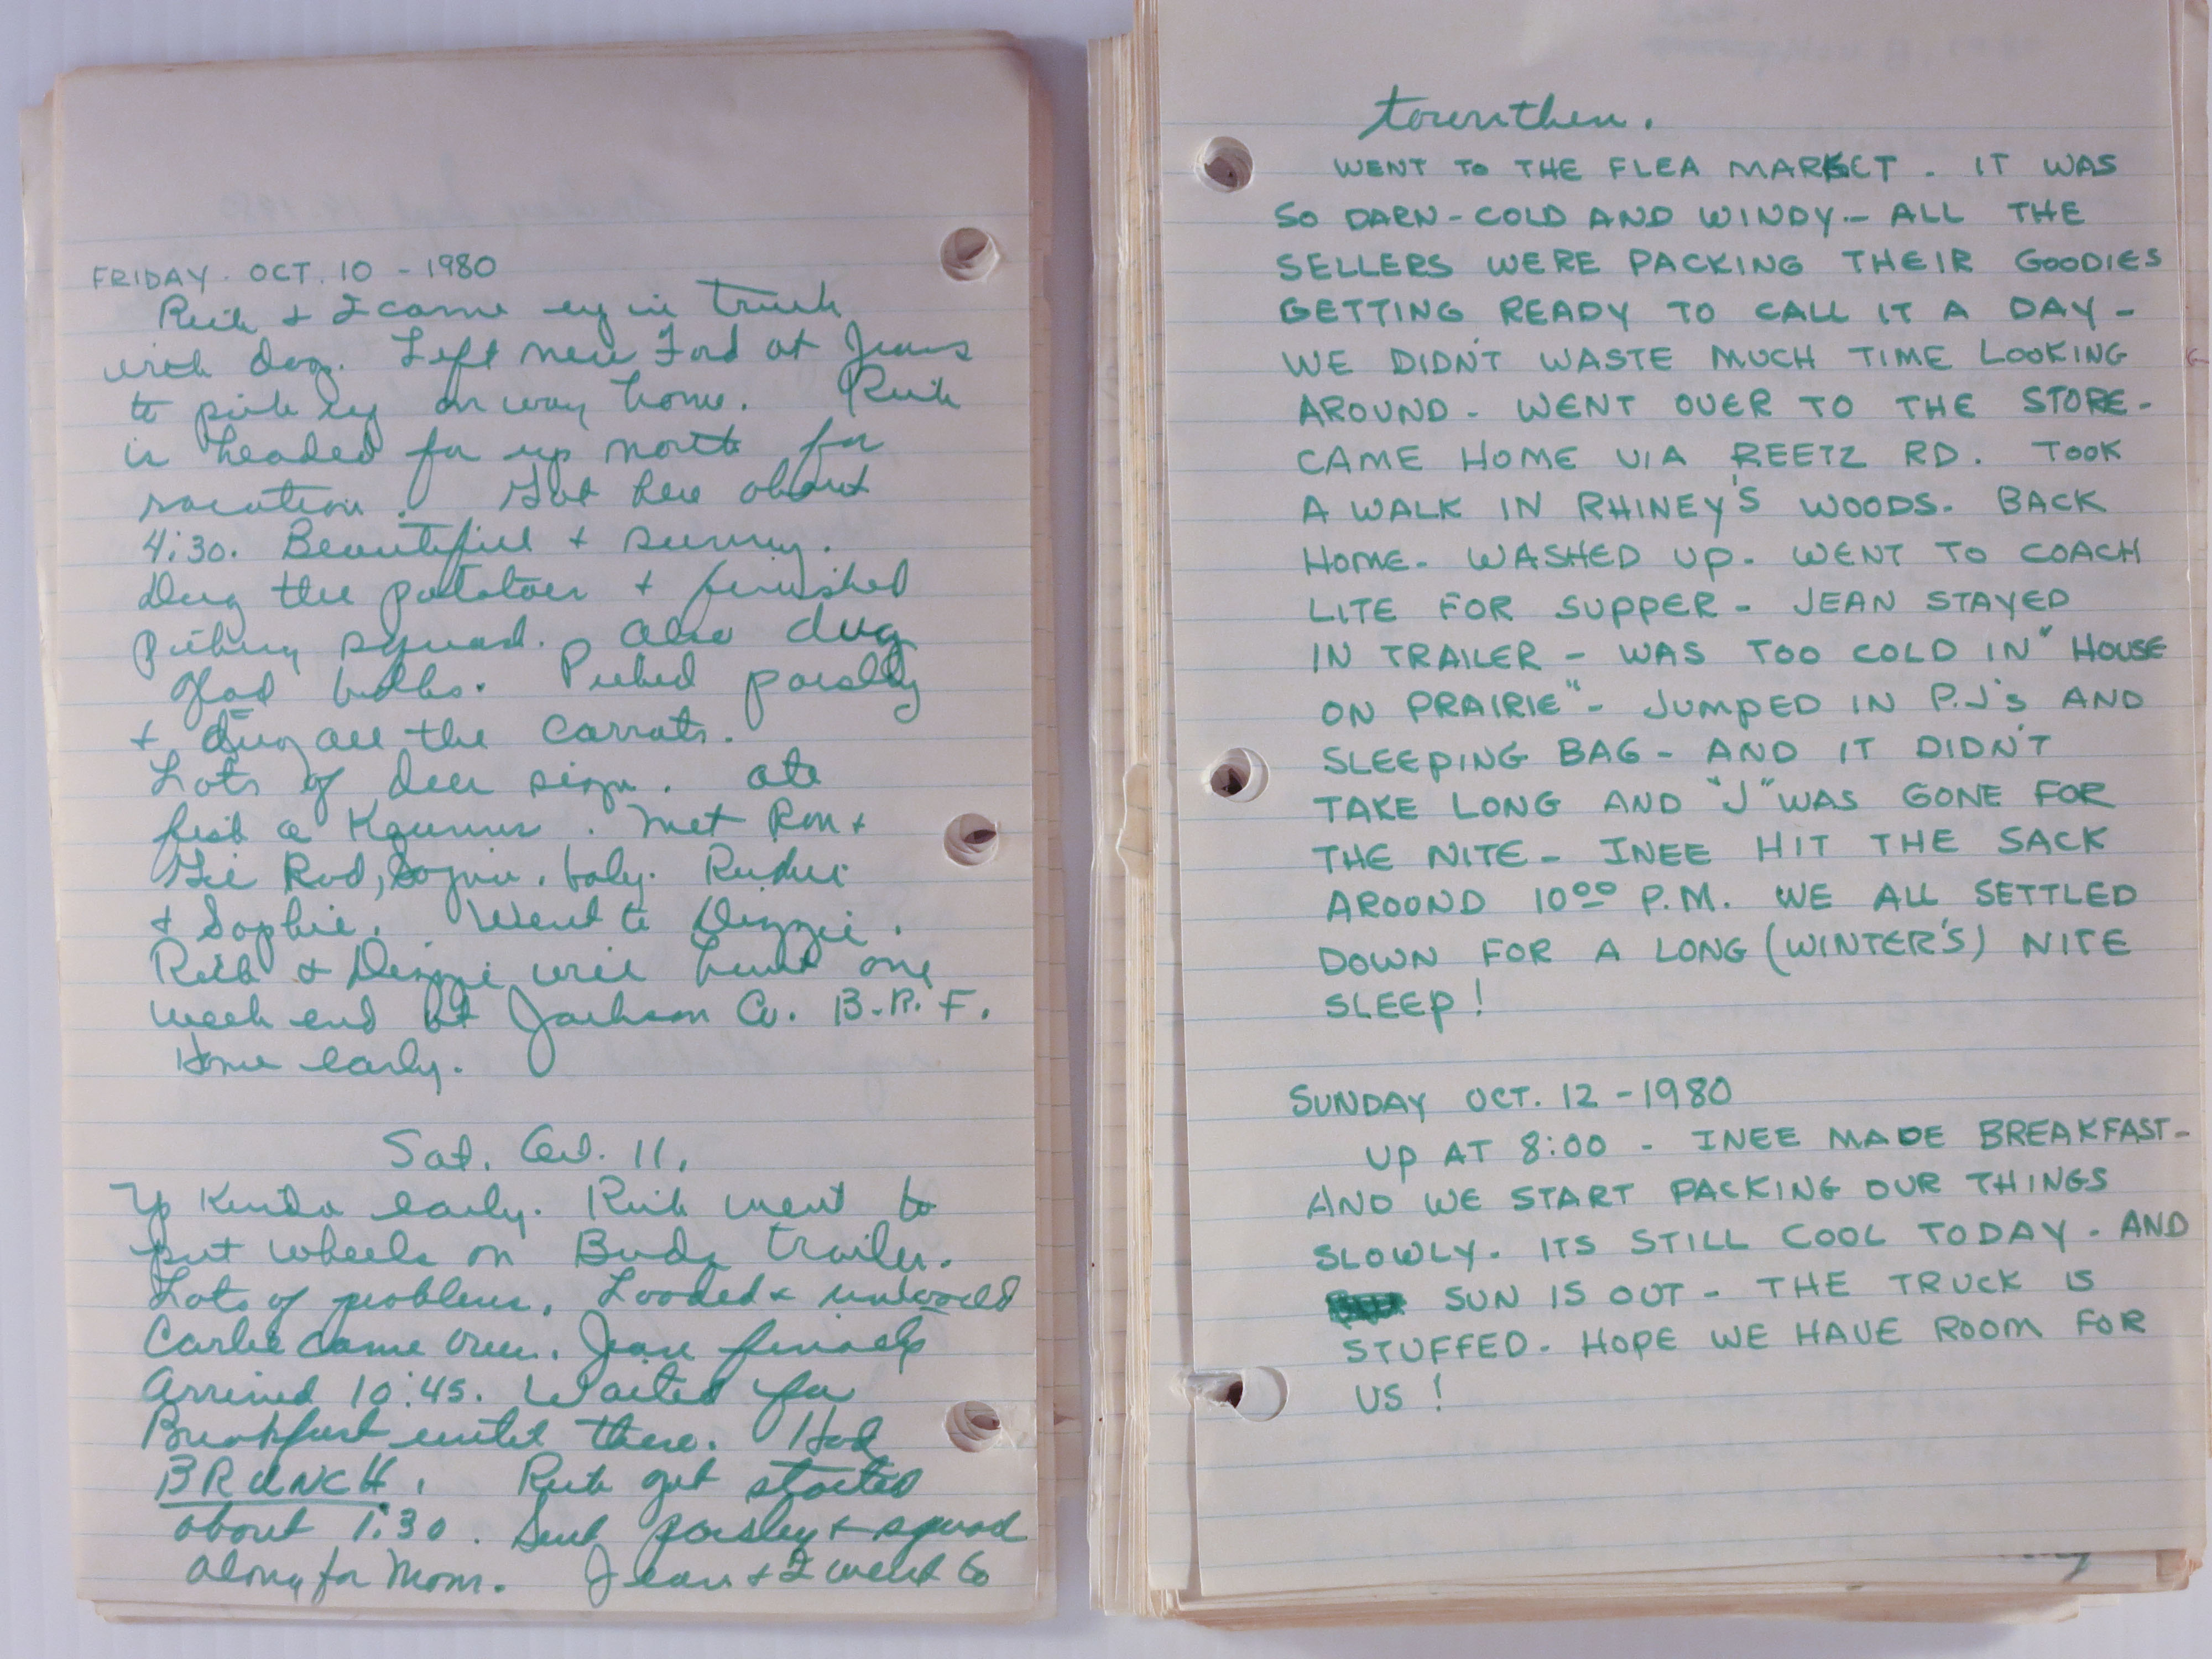 FRIDAY. OCT. 10 - 1980
Rich & I came up in truck
with dog. Left new Ford at Jeans
to pick up on way home. Rich
is headed for up north for
vacation. Got here about
4:30. Beautiful & sunny.
Dug the potatoes & finished
picking squash. Also dug
glad bulbs. Picked parsley
& dug all the carrots.
Lots of deer sign. Ate
fish Met Ron &
Rod,
& Sophie. Went to Dizzie.
Rich & Dizzie will hunt one
week end at Jackson Co. B.R.F.
Home early.
Sat. Oct. 11,
Up Kinda early. Rich went to
put wheels on Buds trailer.
Lots of problems. Loaded & unloaded
Carlie came over. Jean finally
Arrived 10:45. Waited for
Breakfast until then. Had
BRUNCH. Rich got started
about 1:30. Sent parsley & squash
along for Mom. Jean & I went to
town then.
WENT TO THE FLEA MARKET. IT WAS
SO DARN-COLD AND WINDY.- ALL THE
SELLERS WERE PACKING THEIR GOODIES
GETTING READY TO CALL IT A DAY -
WE DIDN'T WASTE MUCH TIME LOOKING
AROUND - WENT OVER TO THE STORE-
CAME HOME VIA REETZ RD. TOOK
A WALK IN RHINEY'S WOODS. BACK
HOME- WASHED UP- WENT TO COACH
LITE FOR SUPPER - JEAN STAYED
IN TRAILER - WAS TOO COLD IN "HOUSE
ON PRAIRIE"- JUMPED IN P.J'S AND
SLEEPING BAG - AND IT DIDN'T
TAKE LONG AND "J" WAS GONE FOR
THE NITE - INEE HIT THE SACK
AROOND 10⁰⁰ P.M. WE ALL SETTLED
DOWN FOR A LONG (WINTER'S) NITE
SLEEP!
SUNDAY OCT. 12 - 1980
UP AT 8:00 - INEE MADE BREAKFAST-
AND WE START PACKING OUR THINGS
SLOWLY. ITS STILL COOL TODAY - AND
SUN IS OUT - THE TRUCK IS
STUFFED - HOPE WE HAVE ROOM FOR
US!